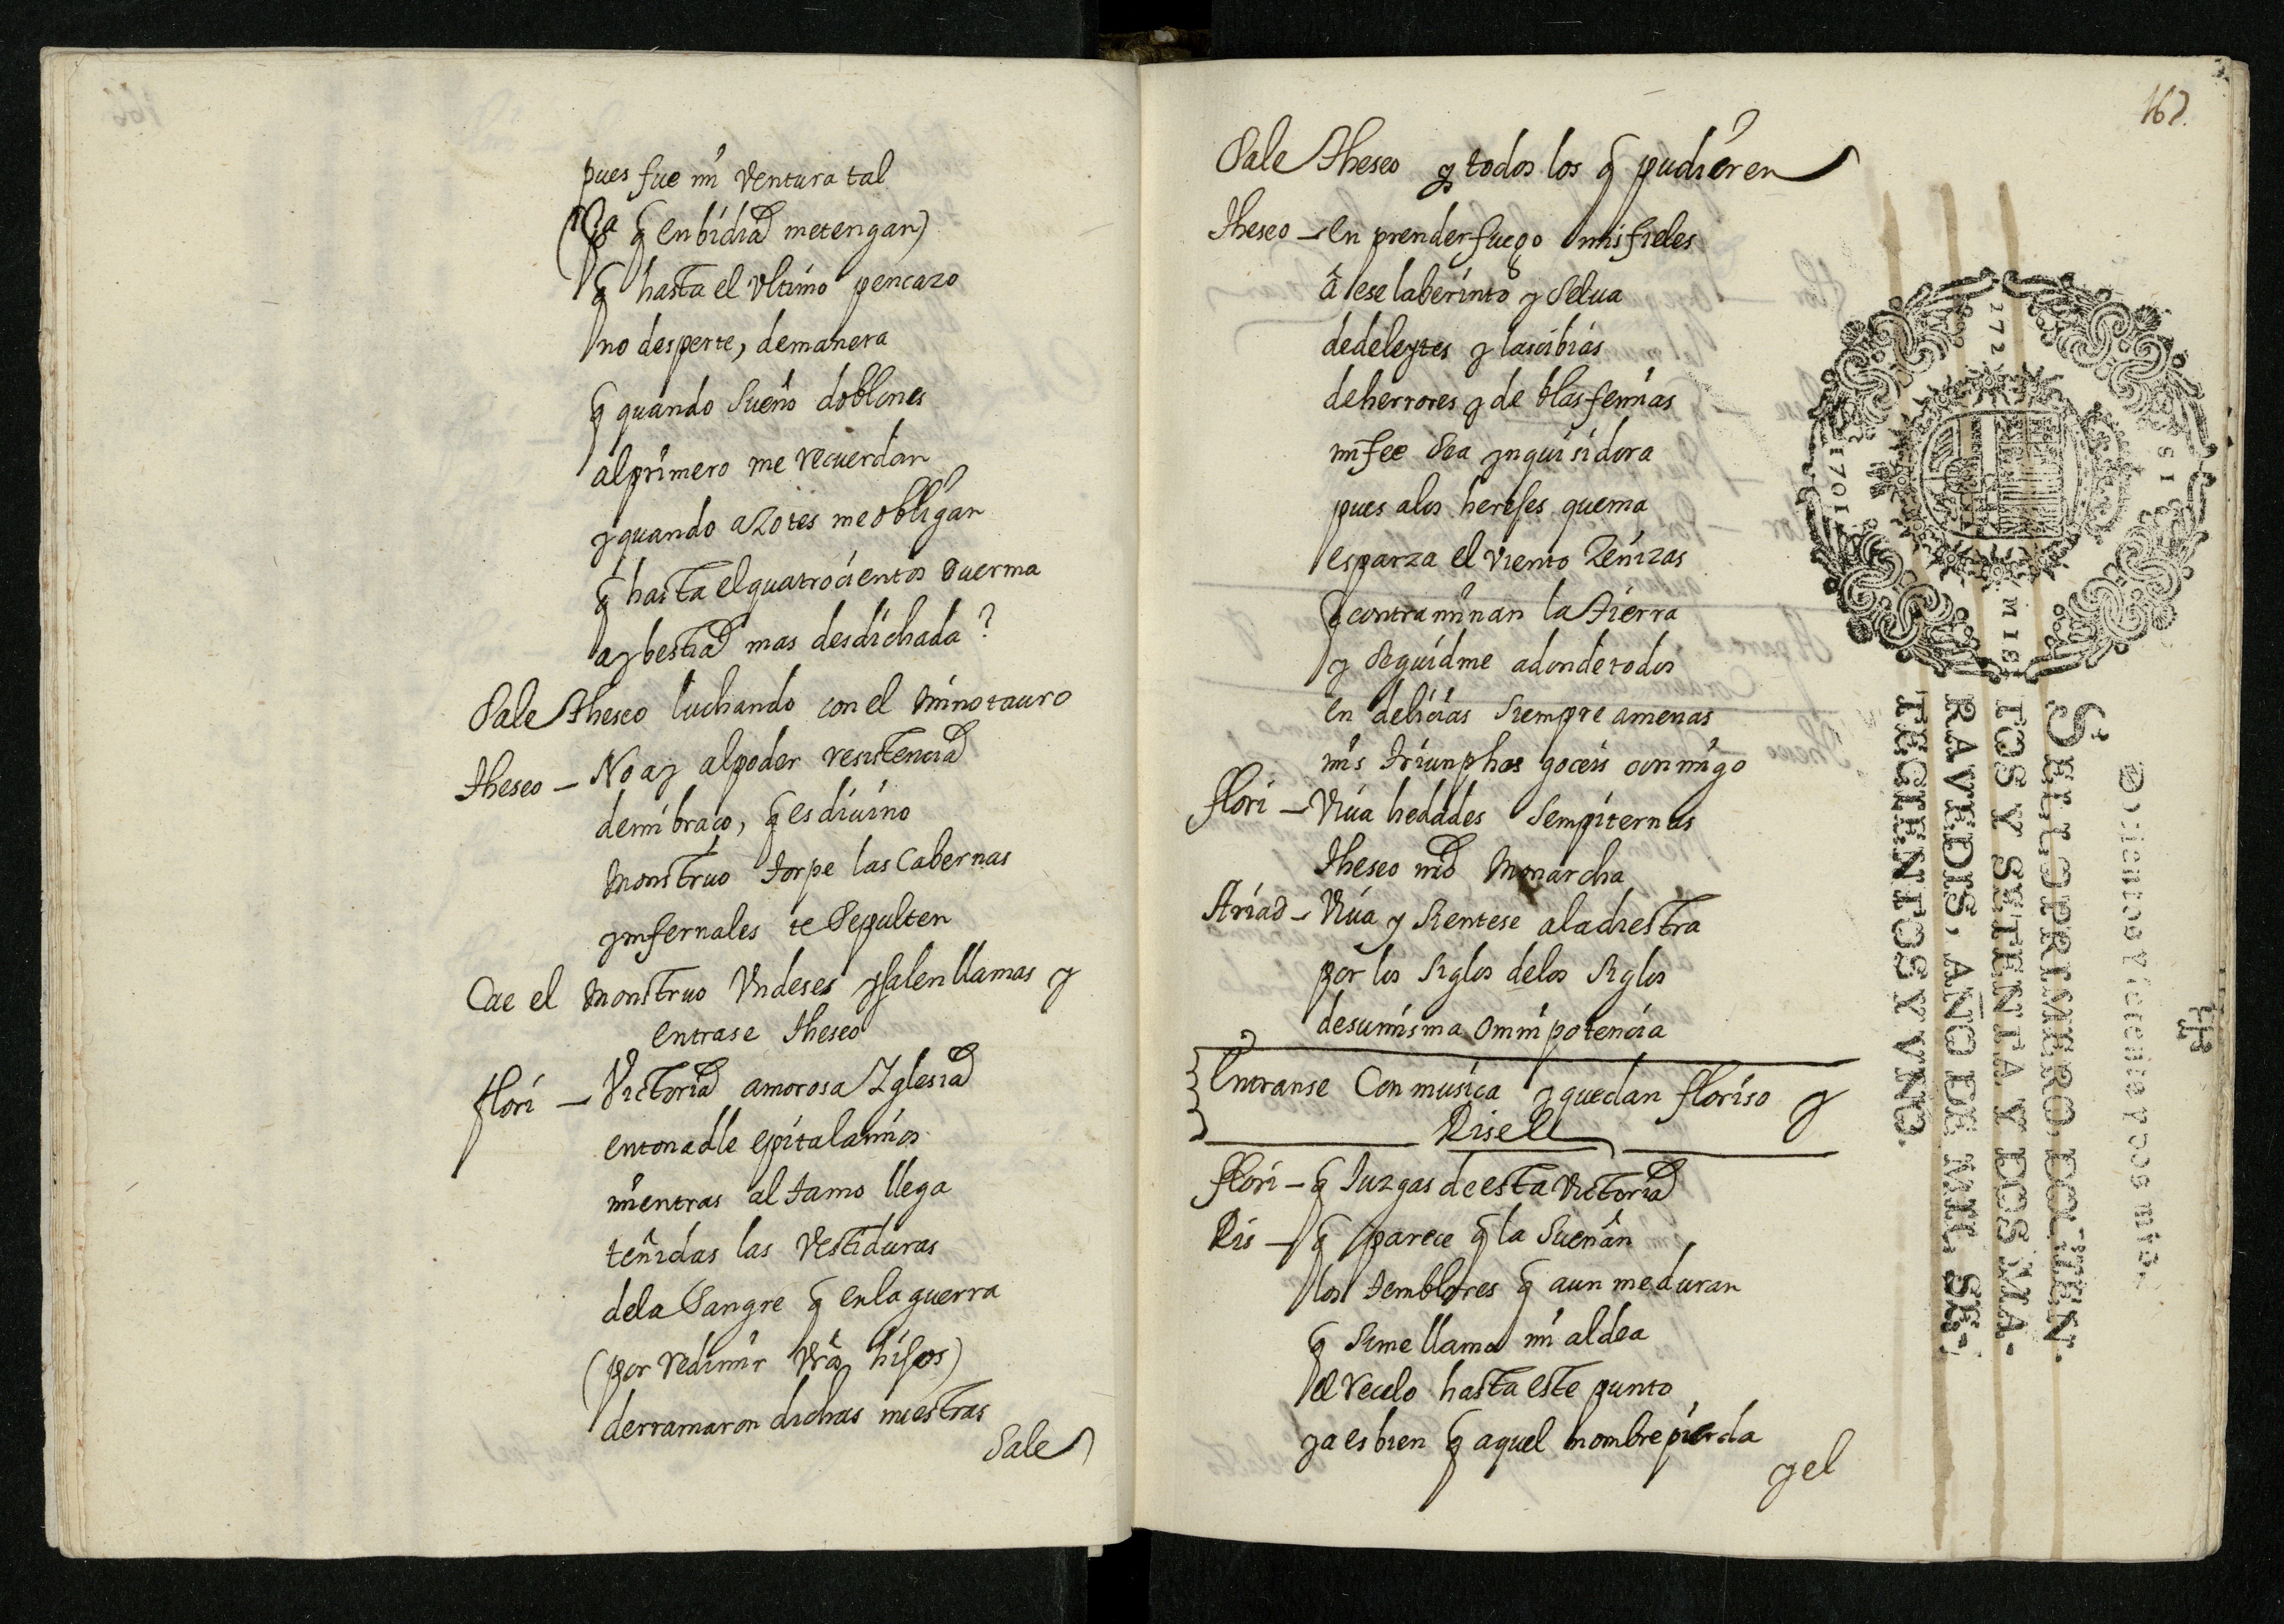 pues fue mi ventura tal
q̃ enbidia me tengan)
q̃ hasta el vltimo pencazo
no desperte, de manera
q̃ quando sueño doblones
al primero me recuerdan
y quando azotes me obligan
q̃ hasta el quatrocientos duerma
ay bestia mas desdichada?
Sale Theseo luchando con el Minotauro
Theseo – No ay al poder resistencia
de mi braço, q̃ es diuino
Monstruo torpe las cabernas
ynfernales te sepulten
Cae el Monstruo Vndese y salen llamas y
entrase Theseo
flori – Victoria amorosa Yglesia
entonadle epitalamios
mientras al tamo llega
teñidas las vestiduras
de la sangre q̃ en la guerra
(por redimir vr̃os hijos)
derramaron dichas nuestras
Sale
167.
Sale Theseo y todos los q̃ pudieren
Theseo – en prender fuego mis fieles
â ese laberinto y selua
de deleytes y lascibias
de herrores y de blasfemias
mi fee sea ynquisidora
pues a los herejes quema
esparza el viento zenizas
q̃ contraminan la tierra
y seguidme adonde todos
en delicias siempre amenas
mis triunphos goceis conmigo
flori – Viua hedades sempiternas
Theseo nr̃o Monarcha
Ariad – Viua y sientese a la diestra
por los siglos de los siglos
de su misma omnipotencia
Entranse con musica y quedan floriso y
Risell
flori – q̃ Juzgas de esta victoria
Ris – q̃ parece q̃ la sueñan
los temblores q̃ aun me duran
q̃ si me llama mi aldea
el recelo hasta este punto
ya es bien q̃ aquel nombre pierda
y el
1701
SELLO PRIMERO, DOCIEN-
TOS Y SETENTA Y DOS MA-
RAVEDIS, AÑO DE MIL SE-
TECIENTOS Y VNO.